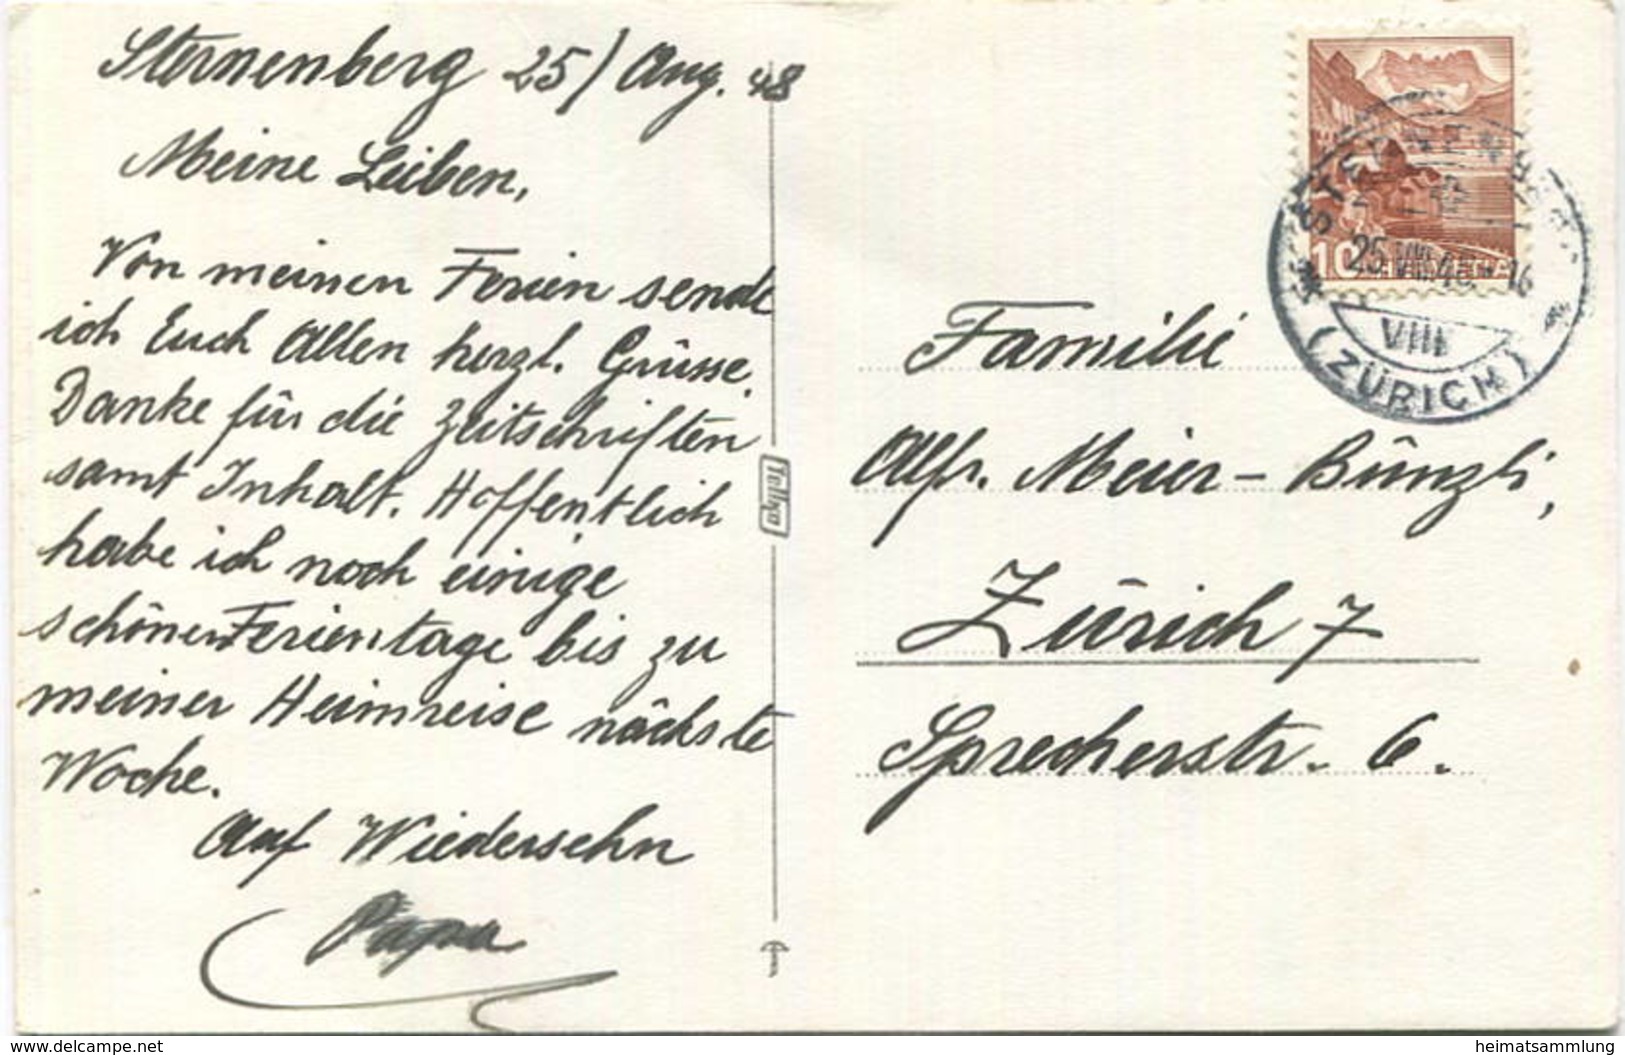 Sternenberg 25/ Aug. 48
Meine Leiben,
Von meinen Ferien sende
ich Euch Allen herzl. Grüsse.
Danke für die Zeitschriften
samt Inhalt. Hoffentlich
habe ich noch einige
schönen Ferientage bis zu
meiner Heimreise nächste
Woche.
Auf Wiedersehn
Papa
Familie
Alfr. Meier-Bünzli,
Zürich 7
Sprecherstr. 6.
10 HELVETIA
25.VIII.48-16
VIII
(ZÜRICH)
www.delcampe.net
heimatsammlung